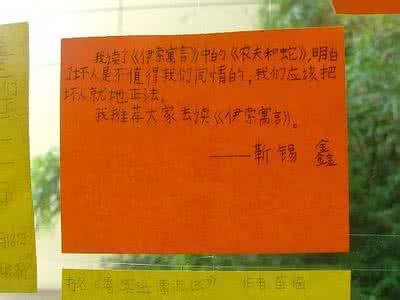 我读了《伊索寓言》中的《农夫和蛇》,明白
了坏人是不值得我们同情的,我们应该把
坏人就地正法。
我推荐大家去读《伊索寓言》。
——靳锡鑫
书名 作者